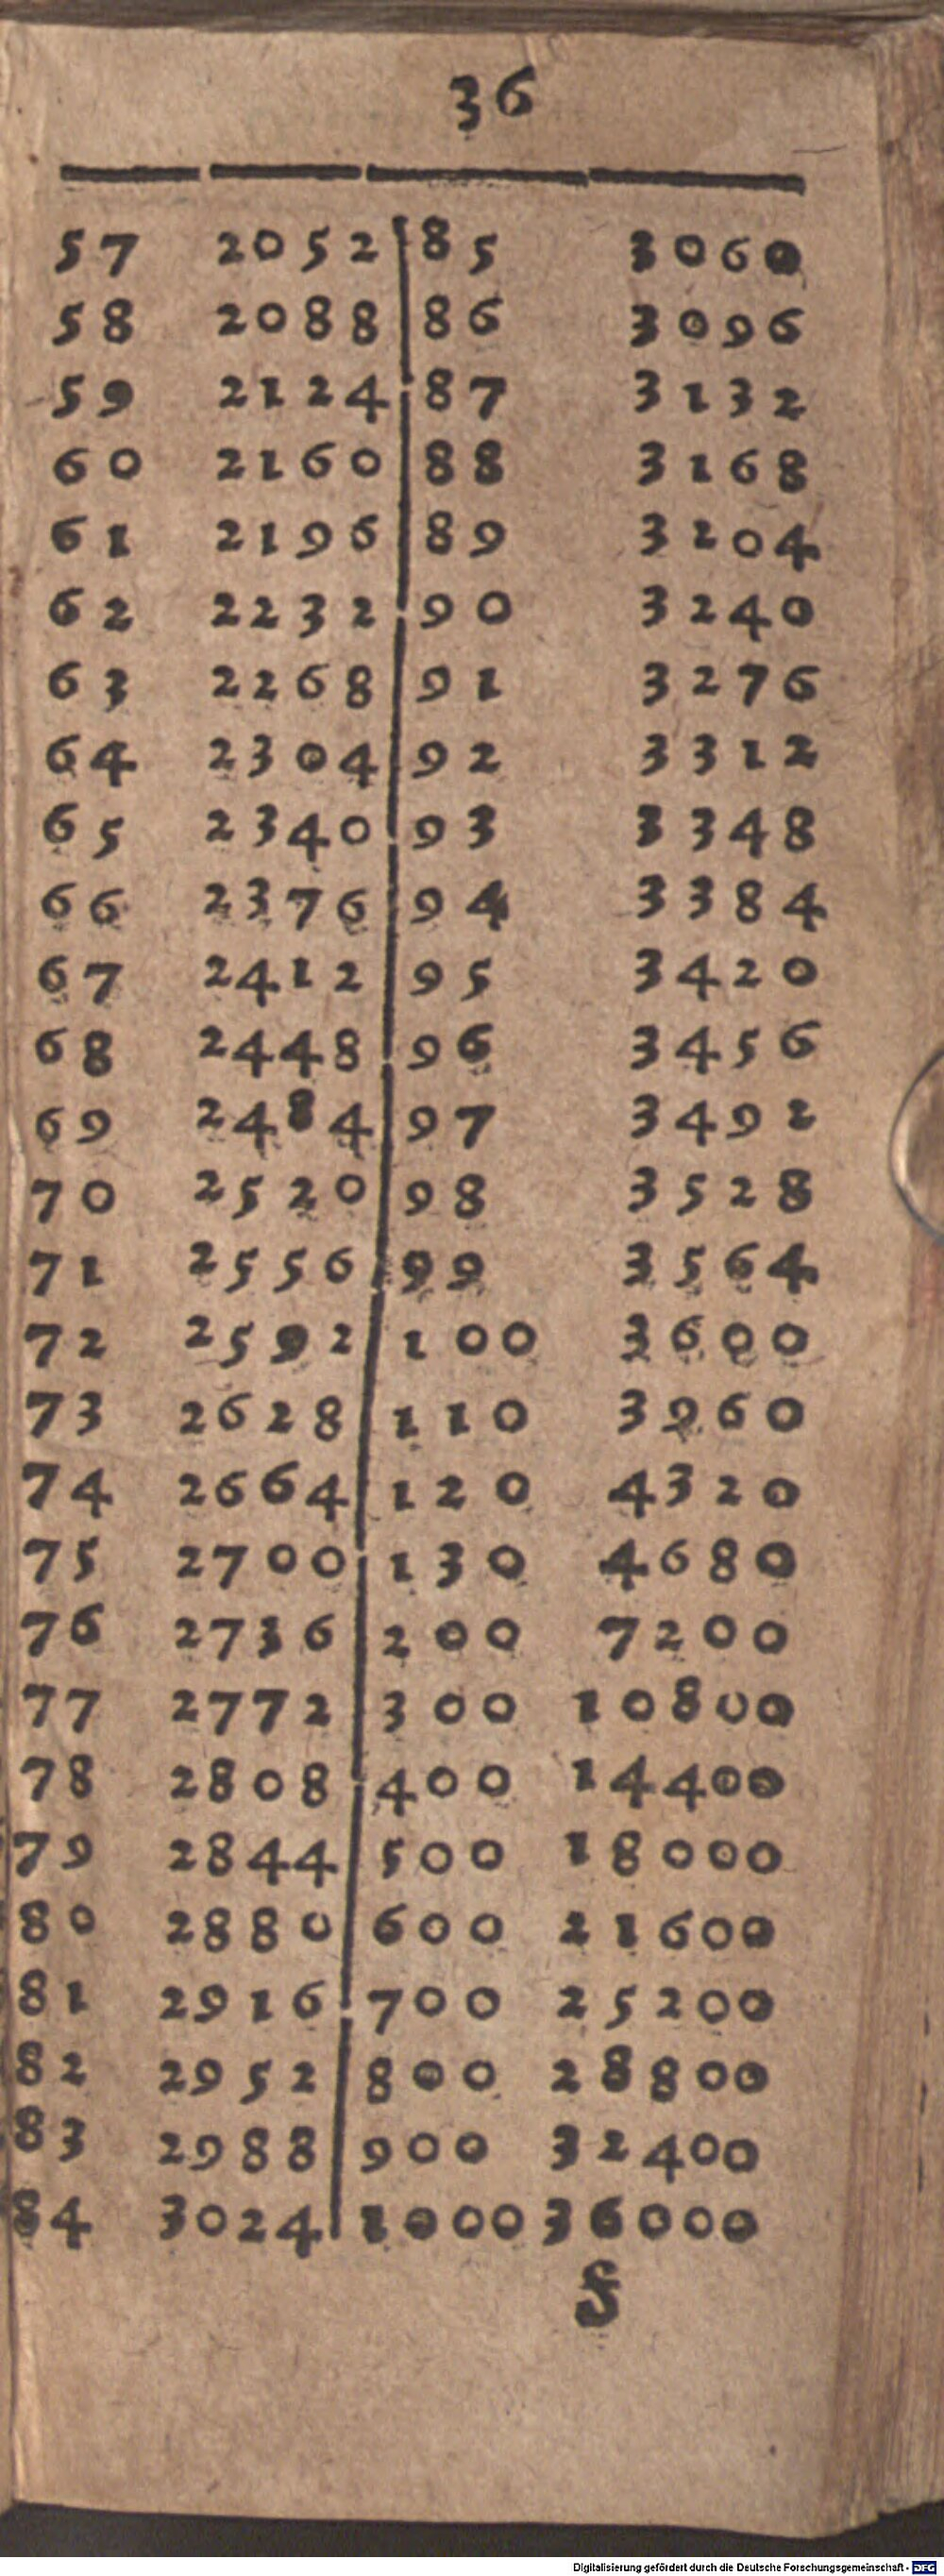 36
57 2052 85 3060
58 2088 86 3096
59 2124 87 3132
60 2160 88 3168
61 2196 89 3204
62 2232 90 3240
63 2268 91 3276
64 2304 92 3312
65 2340 93 3348
66 2376 94 3384
67 2412 95 3420
68 2448 96 3456
69 2484 97 3492
70 2520 98 3528
71 2556 99 3564
72 2592 100 3600
73 2628 110 3960
74 2664 120 4320
75 2700 130 4680
76 2736 200 7200
77 2772 300 10800
78 2808 400 14400
79 2844 500 18000
80 2880 600 21600
81 2916 700 25200
82 2952 800 28800
83 2988 900 32400
84 3024 1000 36000
S
Digitalisierung gefördert durch die Deutsche Forschungsgemeinschaft - DFG